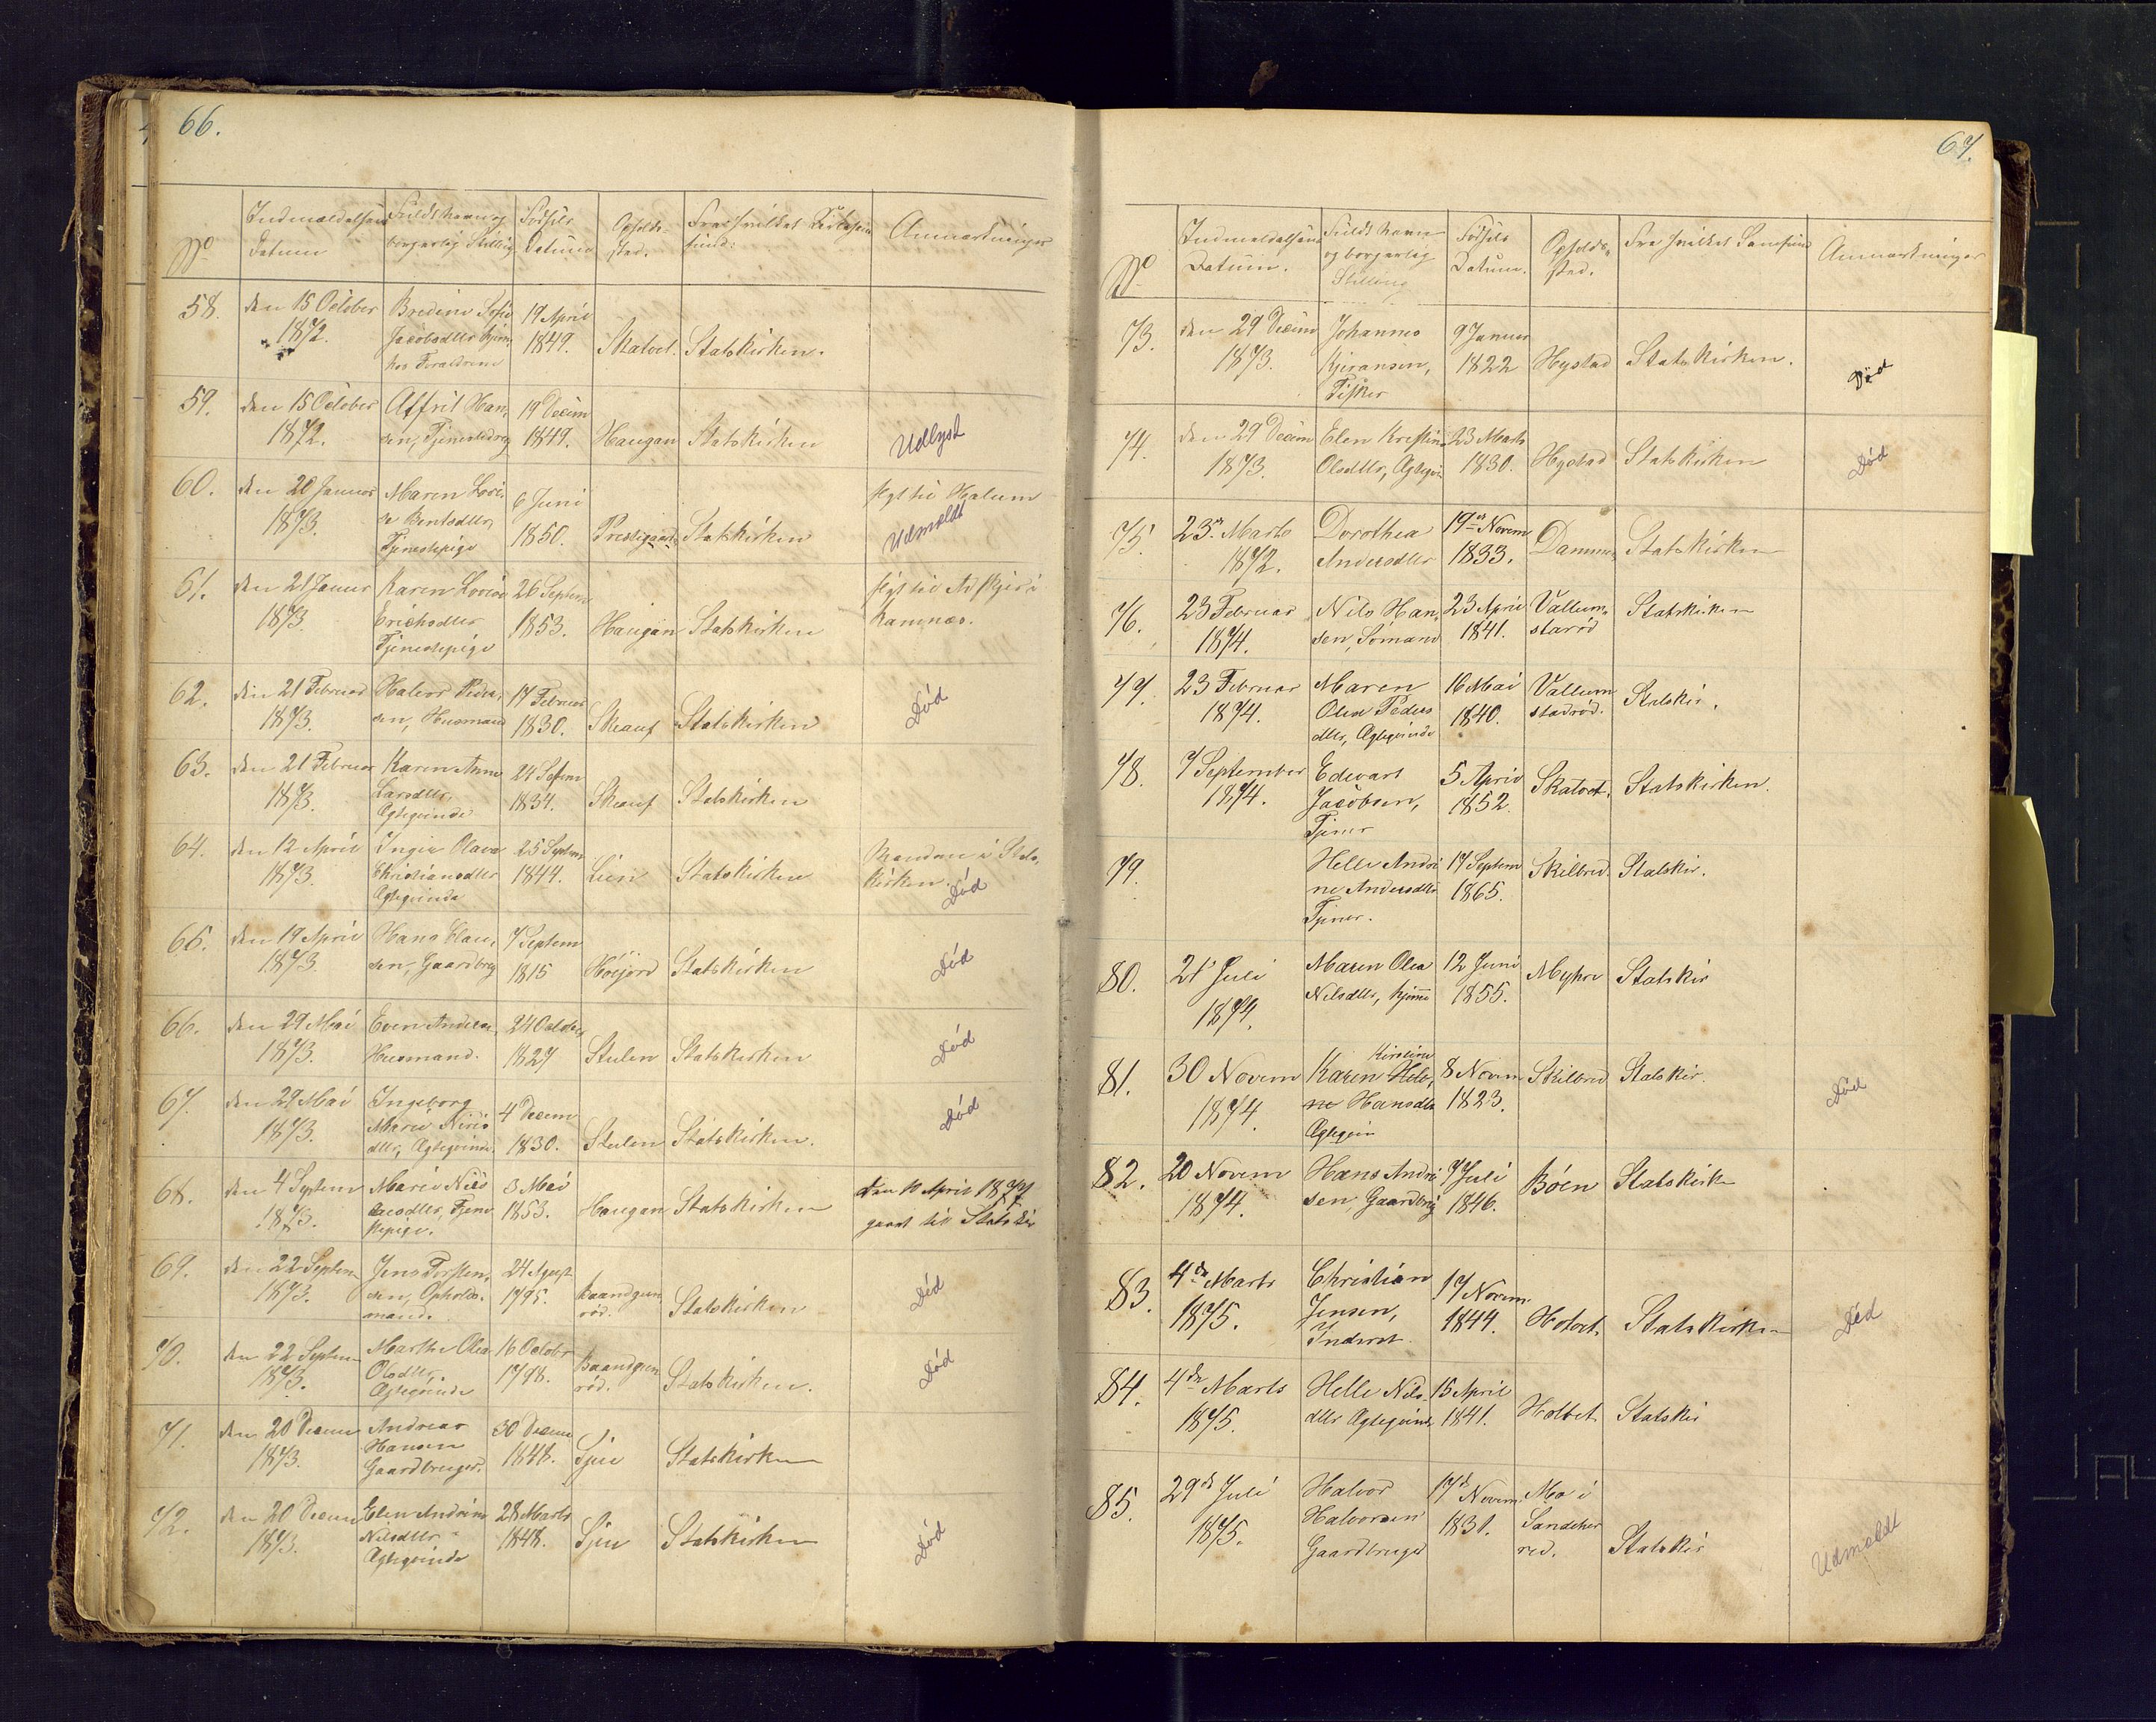 66.
No
Indmældelsens Datum
Fulds Navn og borgerlig Stilling
Fødsels Datum
Opholds-sted.
Fra hvilket Kirkesamfund:
Anmærkninger
58. den 15 October 1872.
Bredine Sofie Jacobsdtr, hjem, hos Foraldrene
17 April 1849.
Skatvet.
Statskirken.
59. den 15 October 1872.
Affrit Hansen, Tjenestedreng
19 Decem 1849.
Haugan
Statskirken
Udlyst
60. den 20 Januar 1873.
Maren Lovise Berntsdtr, Tjenestepige
6 Juni 1850.
Prestegaard
Statskirken
flyt til Halum
Udmeldt
61. den 21 Januar 1873.
Karen Lovise Erichsdtr Tjenestepige
26 Septem 1853.
Haugan
Statskirken
flyt til
Ramnæs.
62. den 21 Februar 1873.
Halvor Peder,sen, Husmand
17 Februar 1830.
Skauf
Statskirken
Død
63. den 21 Februar 1873.
Karen Anne Larsdtr, Ægteqvinde
24 Septem 1834.
Skauf
Statskirken
64. den 12 April 1873.
Inger Olava Christiansdtr Ægteqvinde
25 Septem 1844.
Lien
Statskirken
Manden i Stats,kirken.
Død
65. den 19 April 1873.
Hans Clau,sen, Gaardbrug
7 Septem 1815
Høijord
Statskirken
Død
66. den 29 Mai 1873.
Even Anders, Husmand.
24 October 1827
Stulen
Statskirken
Død
67. den 29 Mai 1873.
Ingeborg Marie Nirisdtr, Ægteqvinde.
4 Decem 1830.
Stulen
Statskirken.
Død
68. den 4 Septem 1873.
Marie Nils dtr, Tjenstepige.
3 Mai 1853.
Haugan
Statskirken
den 10 April 1877 gaaet till Statskir
69. den 22 Septem 1873.
Jens Torsten,sen, Opholds-mand.
24 Agust 1795.
Baandgunrød.
Statskirken
Død
70. den 22 Septem 1873.
Marthe Olea Olsdtr, Ægteqvinde
16 Octobr 1798.
Baandgunrød.
Statskirken.
Død
71. den 20 Decem 1873.
Andreas Hansen Gaardbruger.
30 Decem 1848.
Sjue
Statskirken
72. den 20 Decem 1873.
Elen Andrine Nilsdtr Ægteqvinde
28 Marts 1848.
Sjue
Statskirken
Død
67.
No
Indmældelsens Datum.
Fulds Navn og borgerlig Stilling
Fødsels Datum.
Opholds,sted.
Fra hvilket Samfund
Anmærkninger
73. den 29 Decem 1873.
Johannes Kjeransen, Fisker
9 Januar 1822
Hystad
Statskirken.
Død
74. den 29 Decem 1873.
Elen Kristine Olsdtr, Ægteqv
23 Marts 1830.
Hystad
Statskirken
Død
75. 23de Marts 1872.
Dorothea Andersdtr
19de Novem 1833.
Dammen
Statskirken
76. 23 Februar 1874.
Nils Hansen, Sømand
23 April 1841.
Vallumstarød
Statskirken
77. 23 Februar 1874.
Maren Olea Pedersdtr, Ægteqvinde
16 Mai 1840.
Vallumstadrød.
Statskir.
78. 7 September 1874.
Edevart Jacobsen, Tjener
5 April 1852.
Skatvet.
Statskirken.
79.
Helle Andrine Andersdtr Tjener.
17 Septem 1865.
Skilbred.
Statskir.
80. 21 Juli 1874.
Maren Olea Nilsdtr, hjemme
12 Juni 1855.
Myhre
Statskir
81. 30 Novem 1874.
Kirstine
Karen Hele,ne Hansdtr Ægteqvin
8 Novem 1823.
Skilbred
Statskir.
Død
82. 20 Novem 1874.
Hans Andrisen, Gaardbrug
7 Juli 1846.
Bøen
Statskirke
83. 4de Marts 1875.
Christian Jensen, Inderst.
17 Novem 1844.
Holvet.
Statskirken
Død
84. 4de Marts 1875.
Helle Nilsdtr Ægteqvinde
15 April 1841.
Holtvet
Statskir
85. 29de Juli 1875.
Halvor Halvorsen Gaardbruger
17de Novem. 1831.
Mo i Sandeherred.
Statskir
Udmeldt